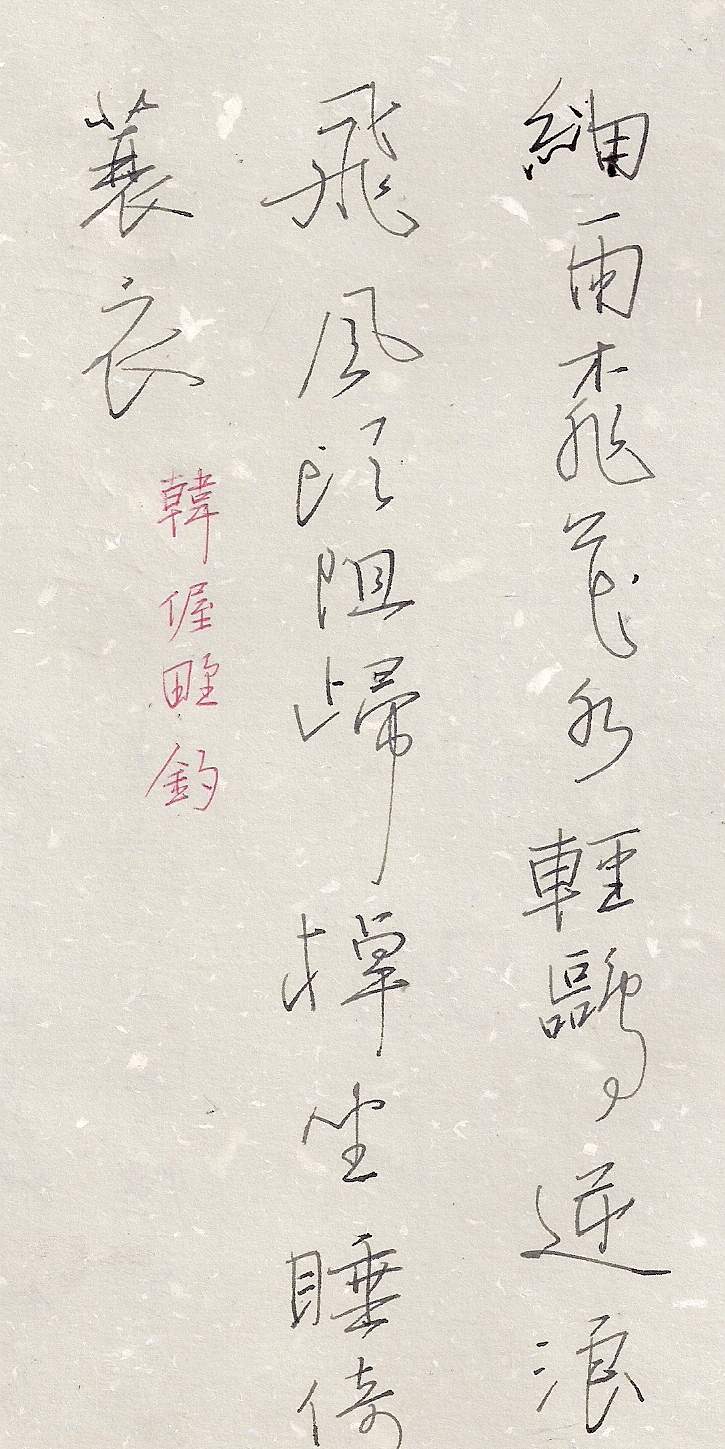 細雨桃花水輕鷗逆浪
飛風頭阻歸棹坐睡倚
蓑衣
韓偓野釣